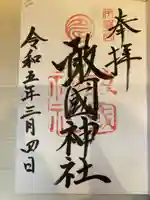 奉拝
敢國神社
令和五年三月四日